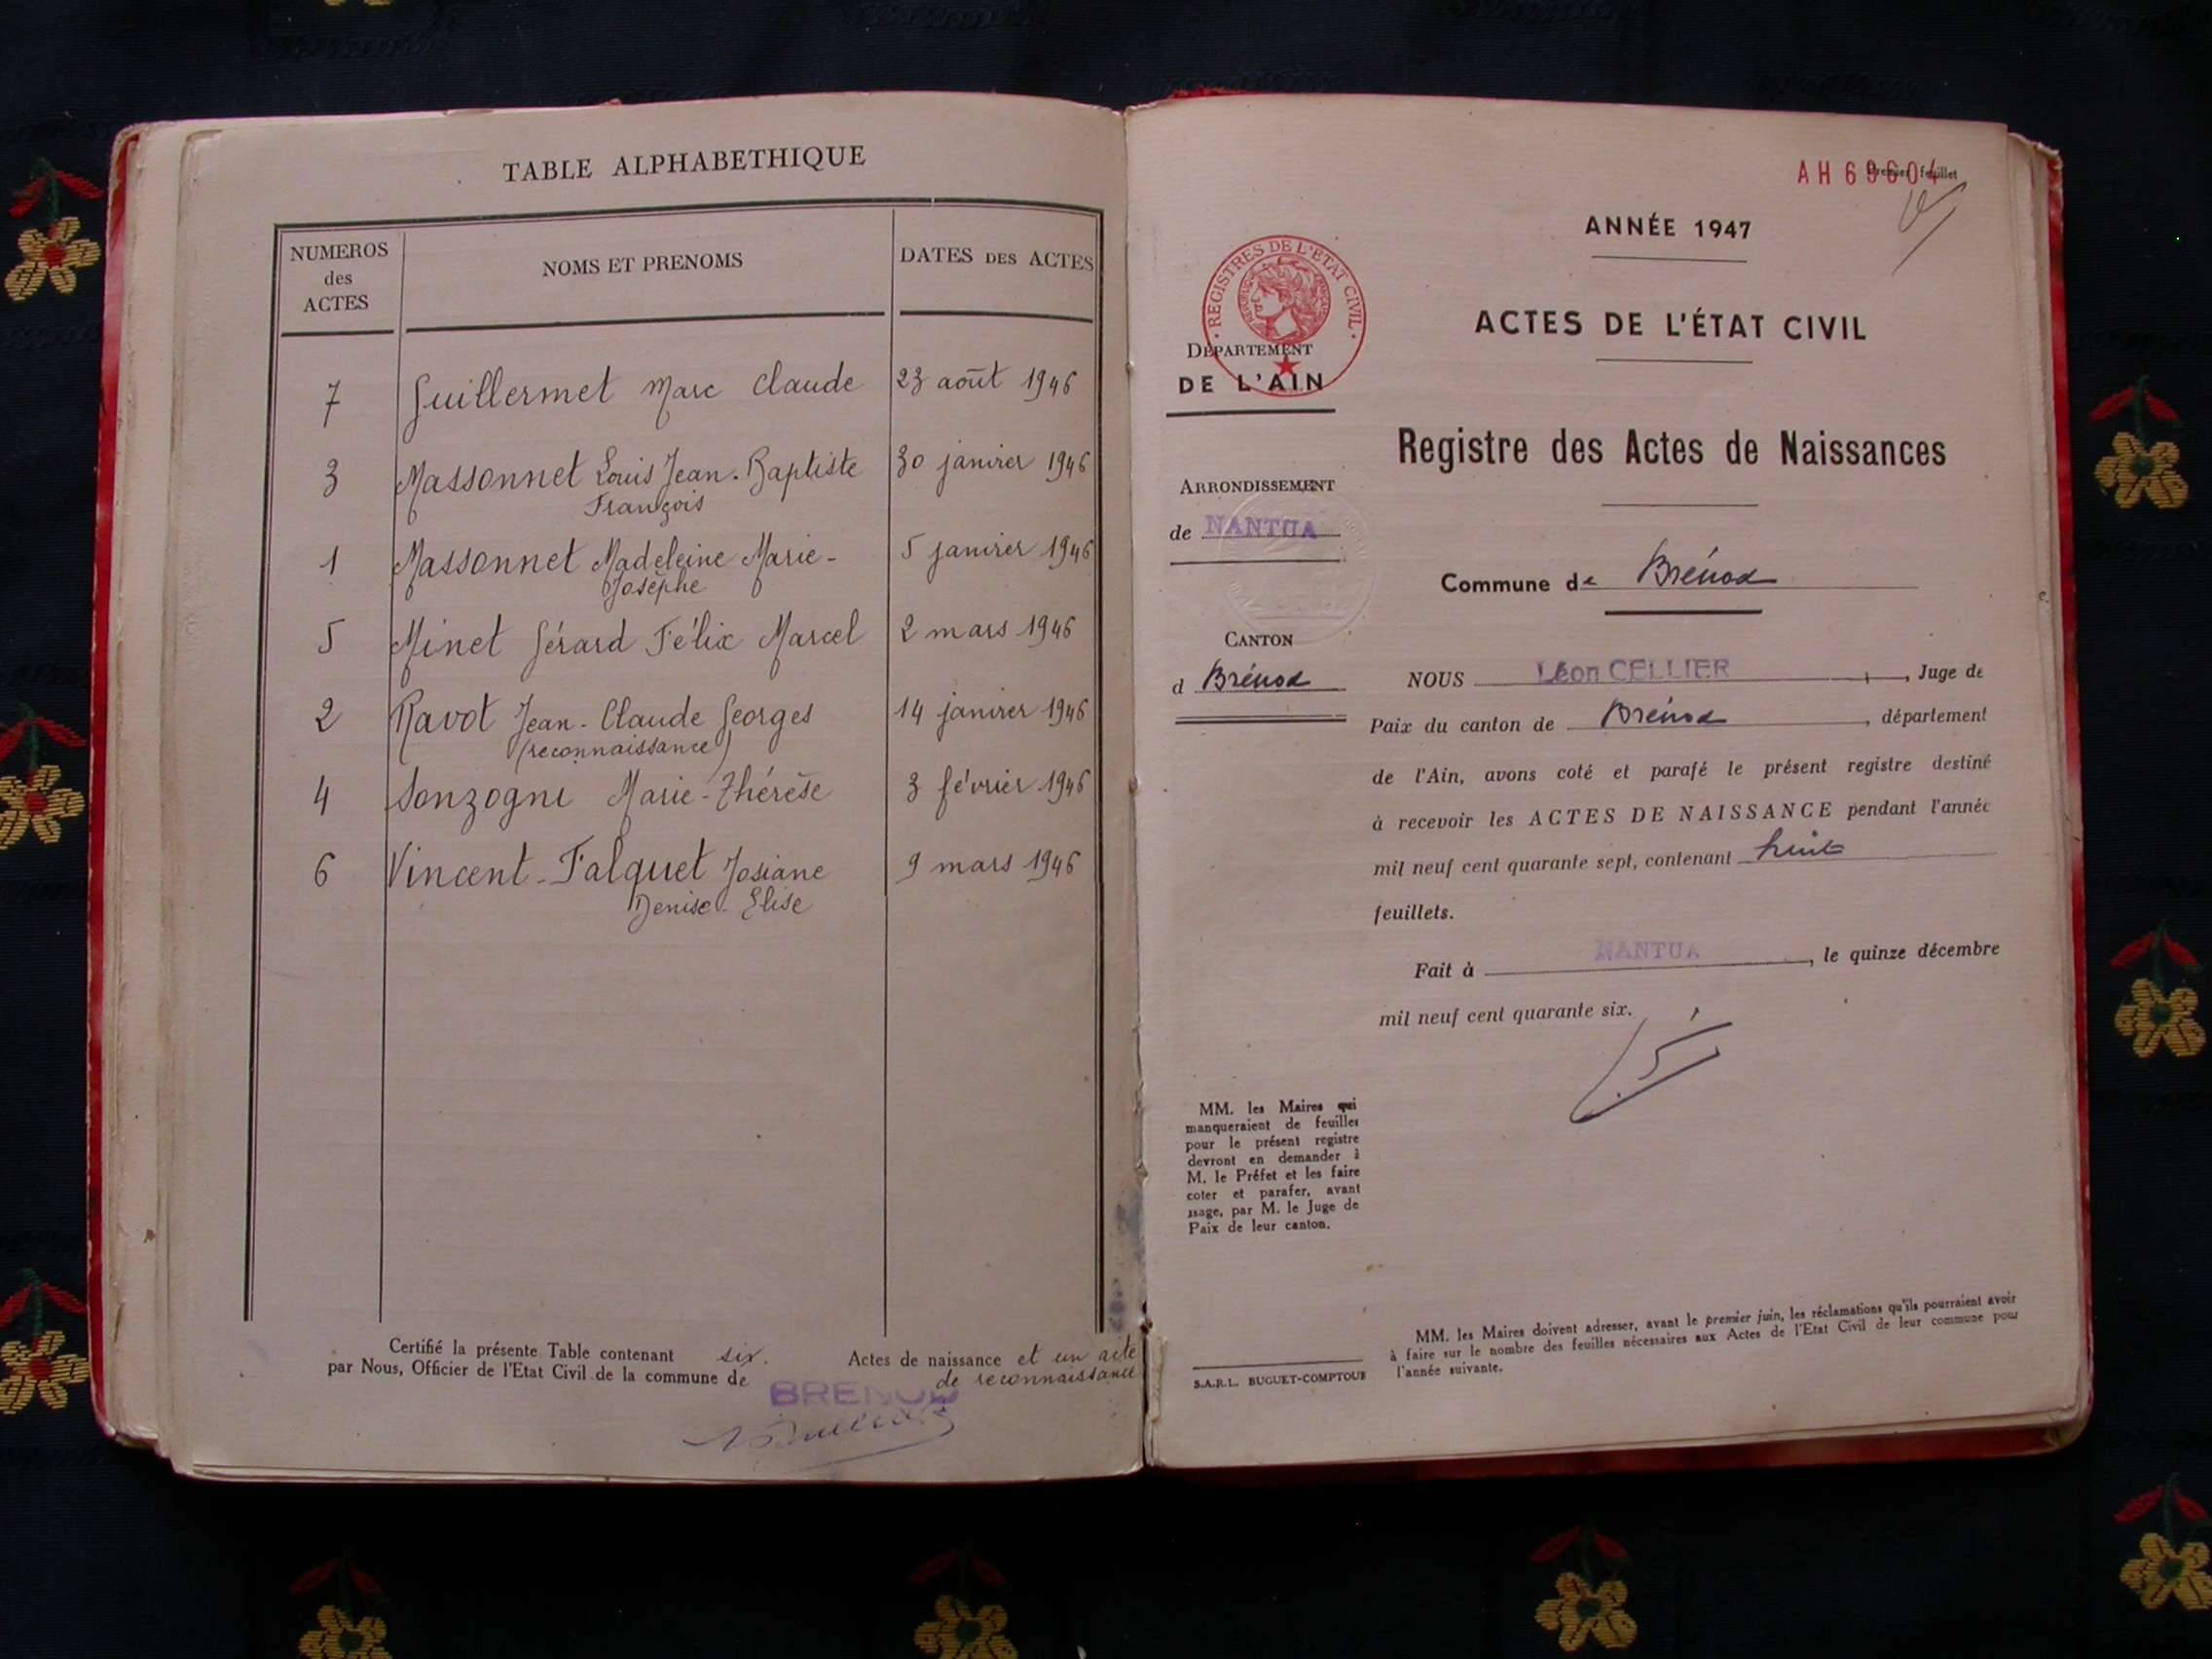 TABLE ALPHABETHIQUE
NUMEROS des ACTES
NOMS ET PRENOMS
DATES DES ACTES
7 Guillermet Marc Claude 23 août 1946
3 Massonnet Louis Jean-Baptiste 30 janvier 1946
François
1 Massonnet Madeleine Marie- 5 janvier 1946
Josèphe
5 Minet Gérard Félix Marcel 2 mars 1946
2 Ravot Jean-Claude Georges 14 janvier 1946
(reconnaissance)
4 Sonzogni Marie-Thérèse 3 février 1946
6 Vincent-Falquet Josiane 9 mars 1946
Denise Elise
Certifié la présente Table contenant six. Actes de naissance et un acte
par Nous, Officier de l'Etat Civil de la commune de de reconnaissance
BRENOD
AH 69604
Premier feuillet
ANNÉE 1947
REGISTRES DE L'ETAT CIVIL
DÉPARTEMENT
DE L'AIN
ACTES DE L'ÉTAT CIVIL
Registre des Actes de Naissances
ARRONDISSEMENT
de NANTUA
Commune de Brénod
CANTON
d Brénod
NOUS Léon CELLIER, Juge de
Paix du canton de Brénod, département
de l'Ain, avons coté et parafé le présent registre destiné
à recevoir les ACTES DE NAISSANCE pendant l'année
mil neuf cent quarante sept, contenant huit
feuillets.
Fait à NANTUA, le quinze décembre
mil neuf cent quarante six.
MM. les Maires qui
manqueraient de feuilles
pour le présent registre
devront en demander à
M. le Préfet et les faire
coter et parafer, avant
usage, par M. le Juge de
Paix de leur canton.
MM. les Maires doivent adresser, avant le premier juin, les réclamations qu'ils pourraient avoir
à faire sur le nombre des feuilles nécessaires aux Actes de l'Etat Civil de leur commune pour
l'année suivante.
S.A.R.L. BUGUET-COMPTOUR